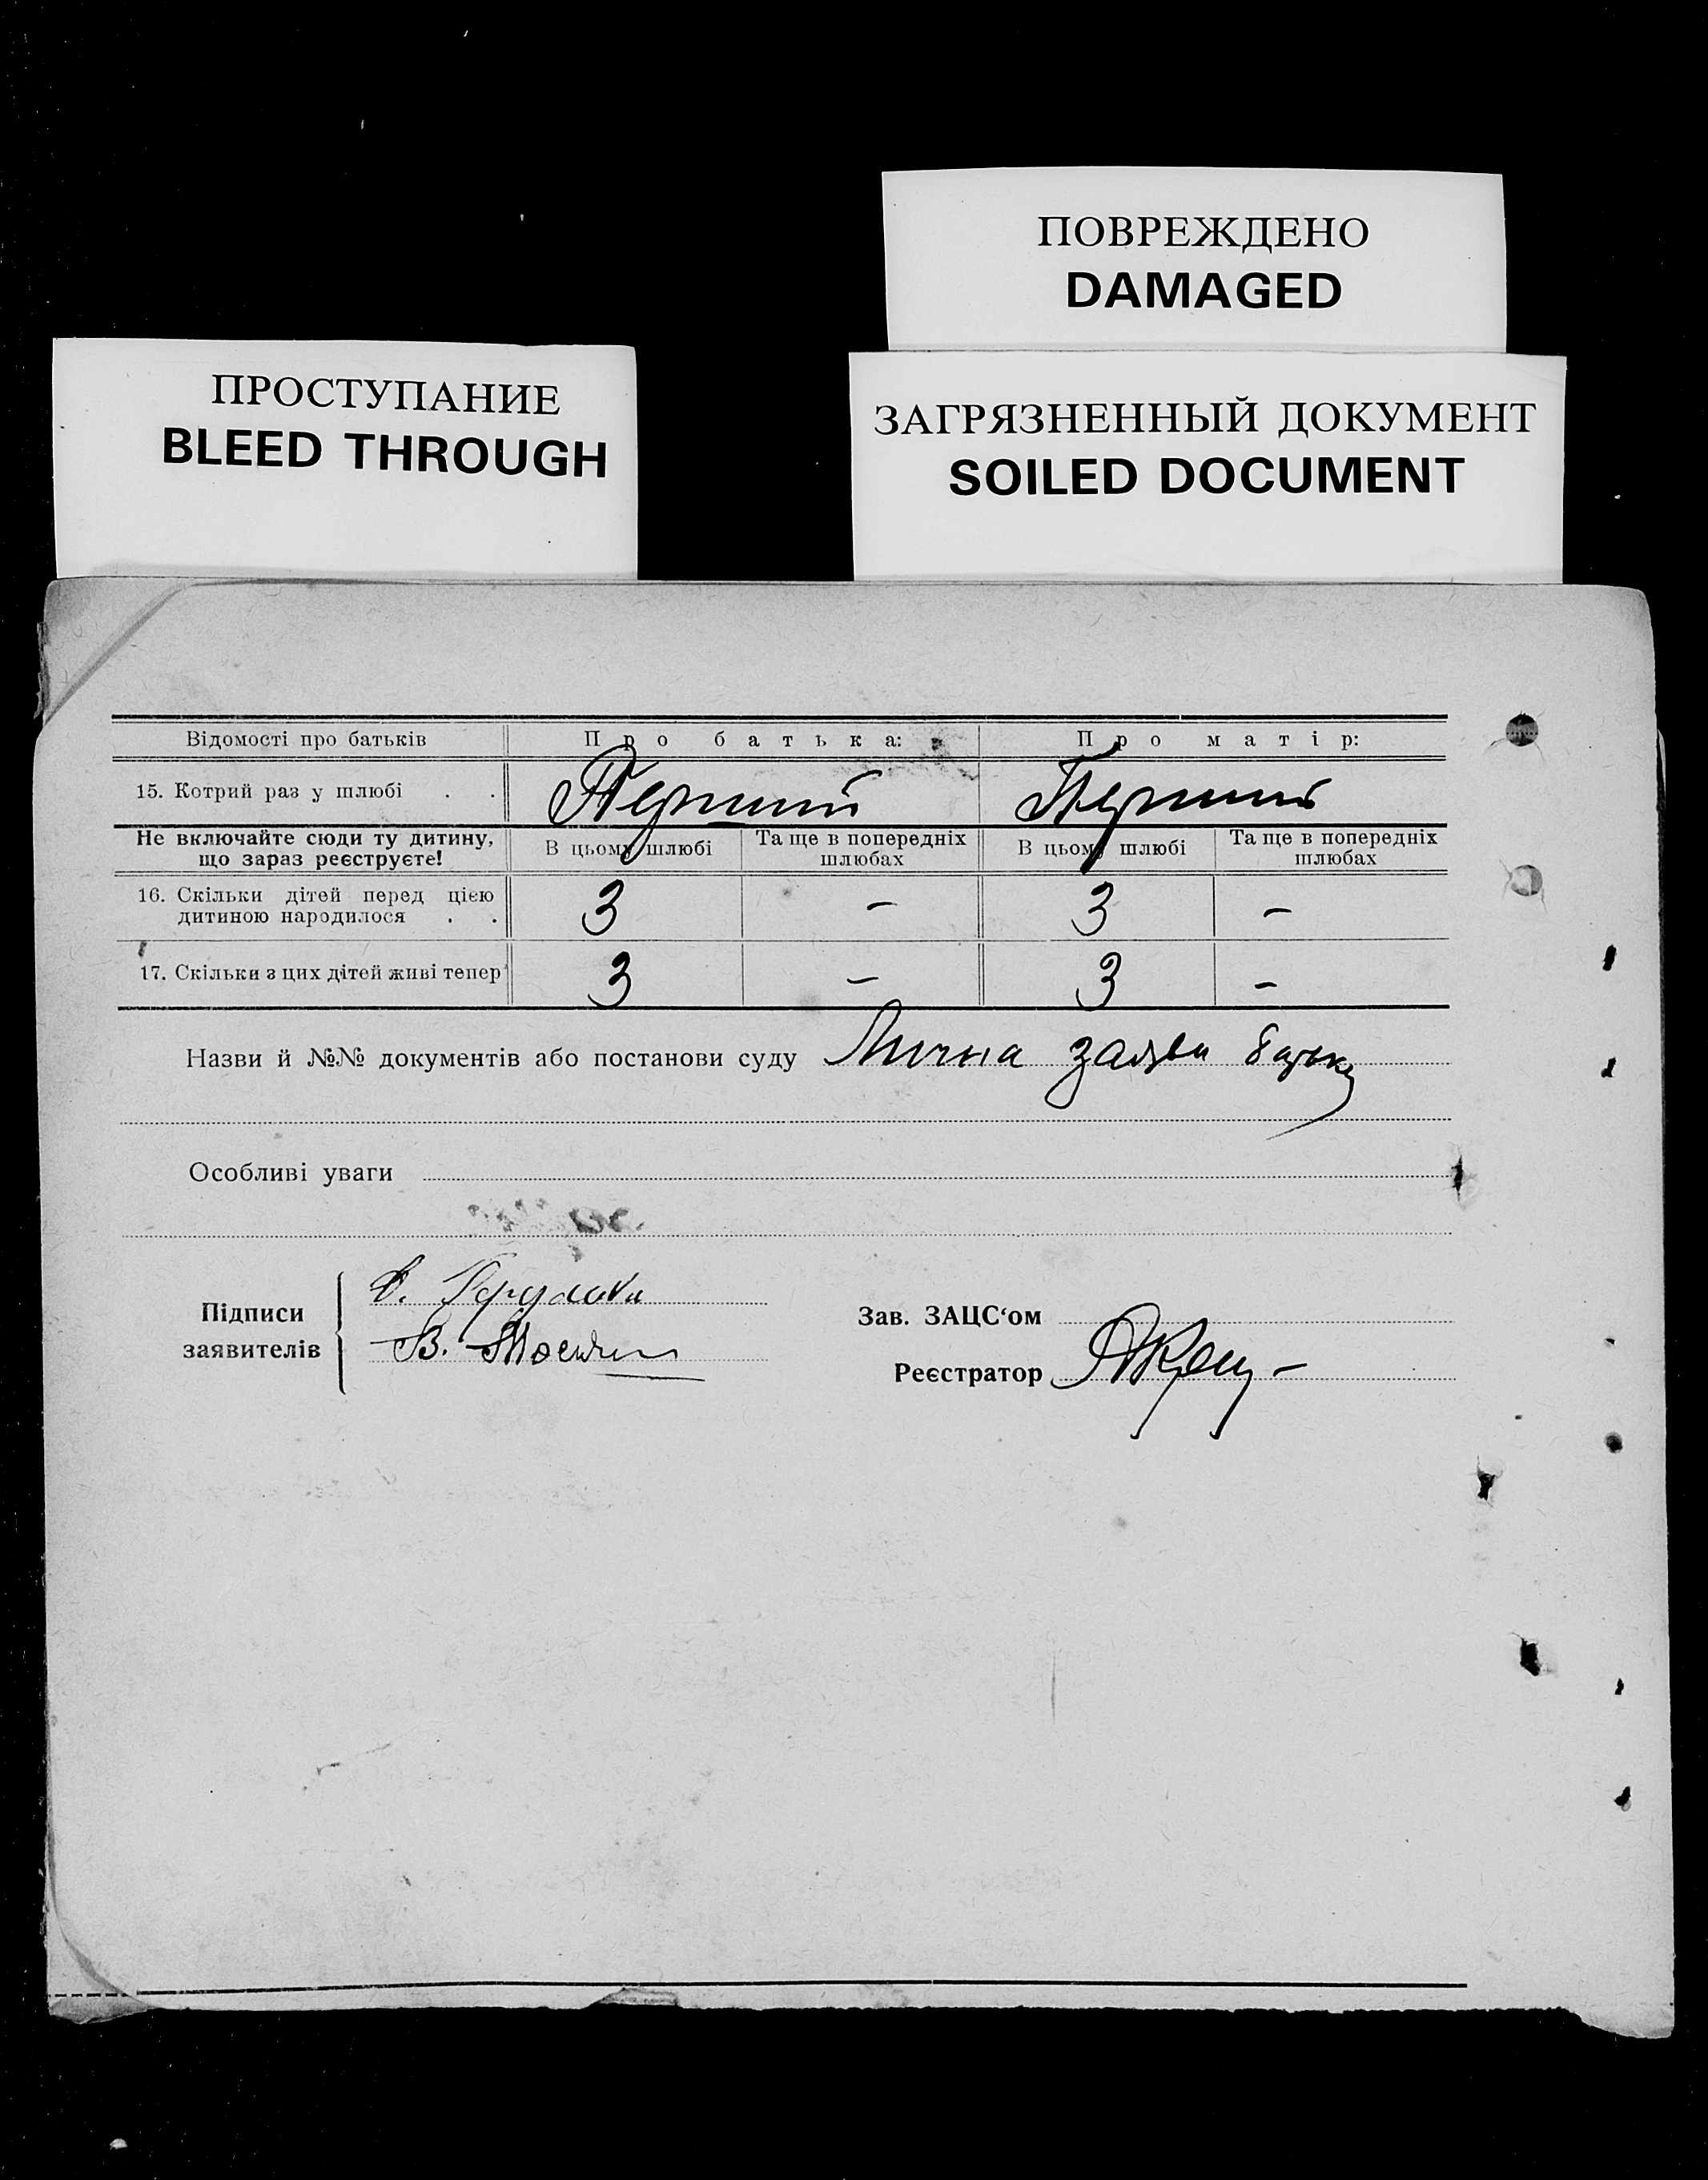 ПОВРЕЖДЕНО
DAMAGED
ПРОСТУПАНИЕ
BLEED THROUGH
ЗАГРЯЗНЕННЫЙ ДОКУМЕНТ
SOILED DOCUMENT
Відомості про батьків Про батька: Про матір:
15. Котрий раз у шлюбі . . Перший Перший
Не включайте сюди ту дитину, що зараз реєструєте! В цьому шлюбі Та ще в попередніх шлюбах В цьому шлюбі Та ще в попередніх шлюбах
16. Скільки дітей перед цією дитиною народилося . . 3 – 3 –
17. Скільки з цих дітей живі тепер 3 – 3 –
Назви й №№ документів або постанови суду Лична заява батька
Особливі уваги
Підписи
заявителів
В.
Зав. ЗАЦС'ом
Реєстратор